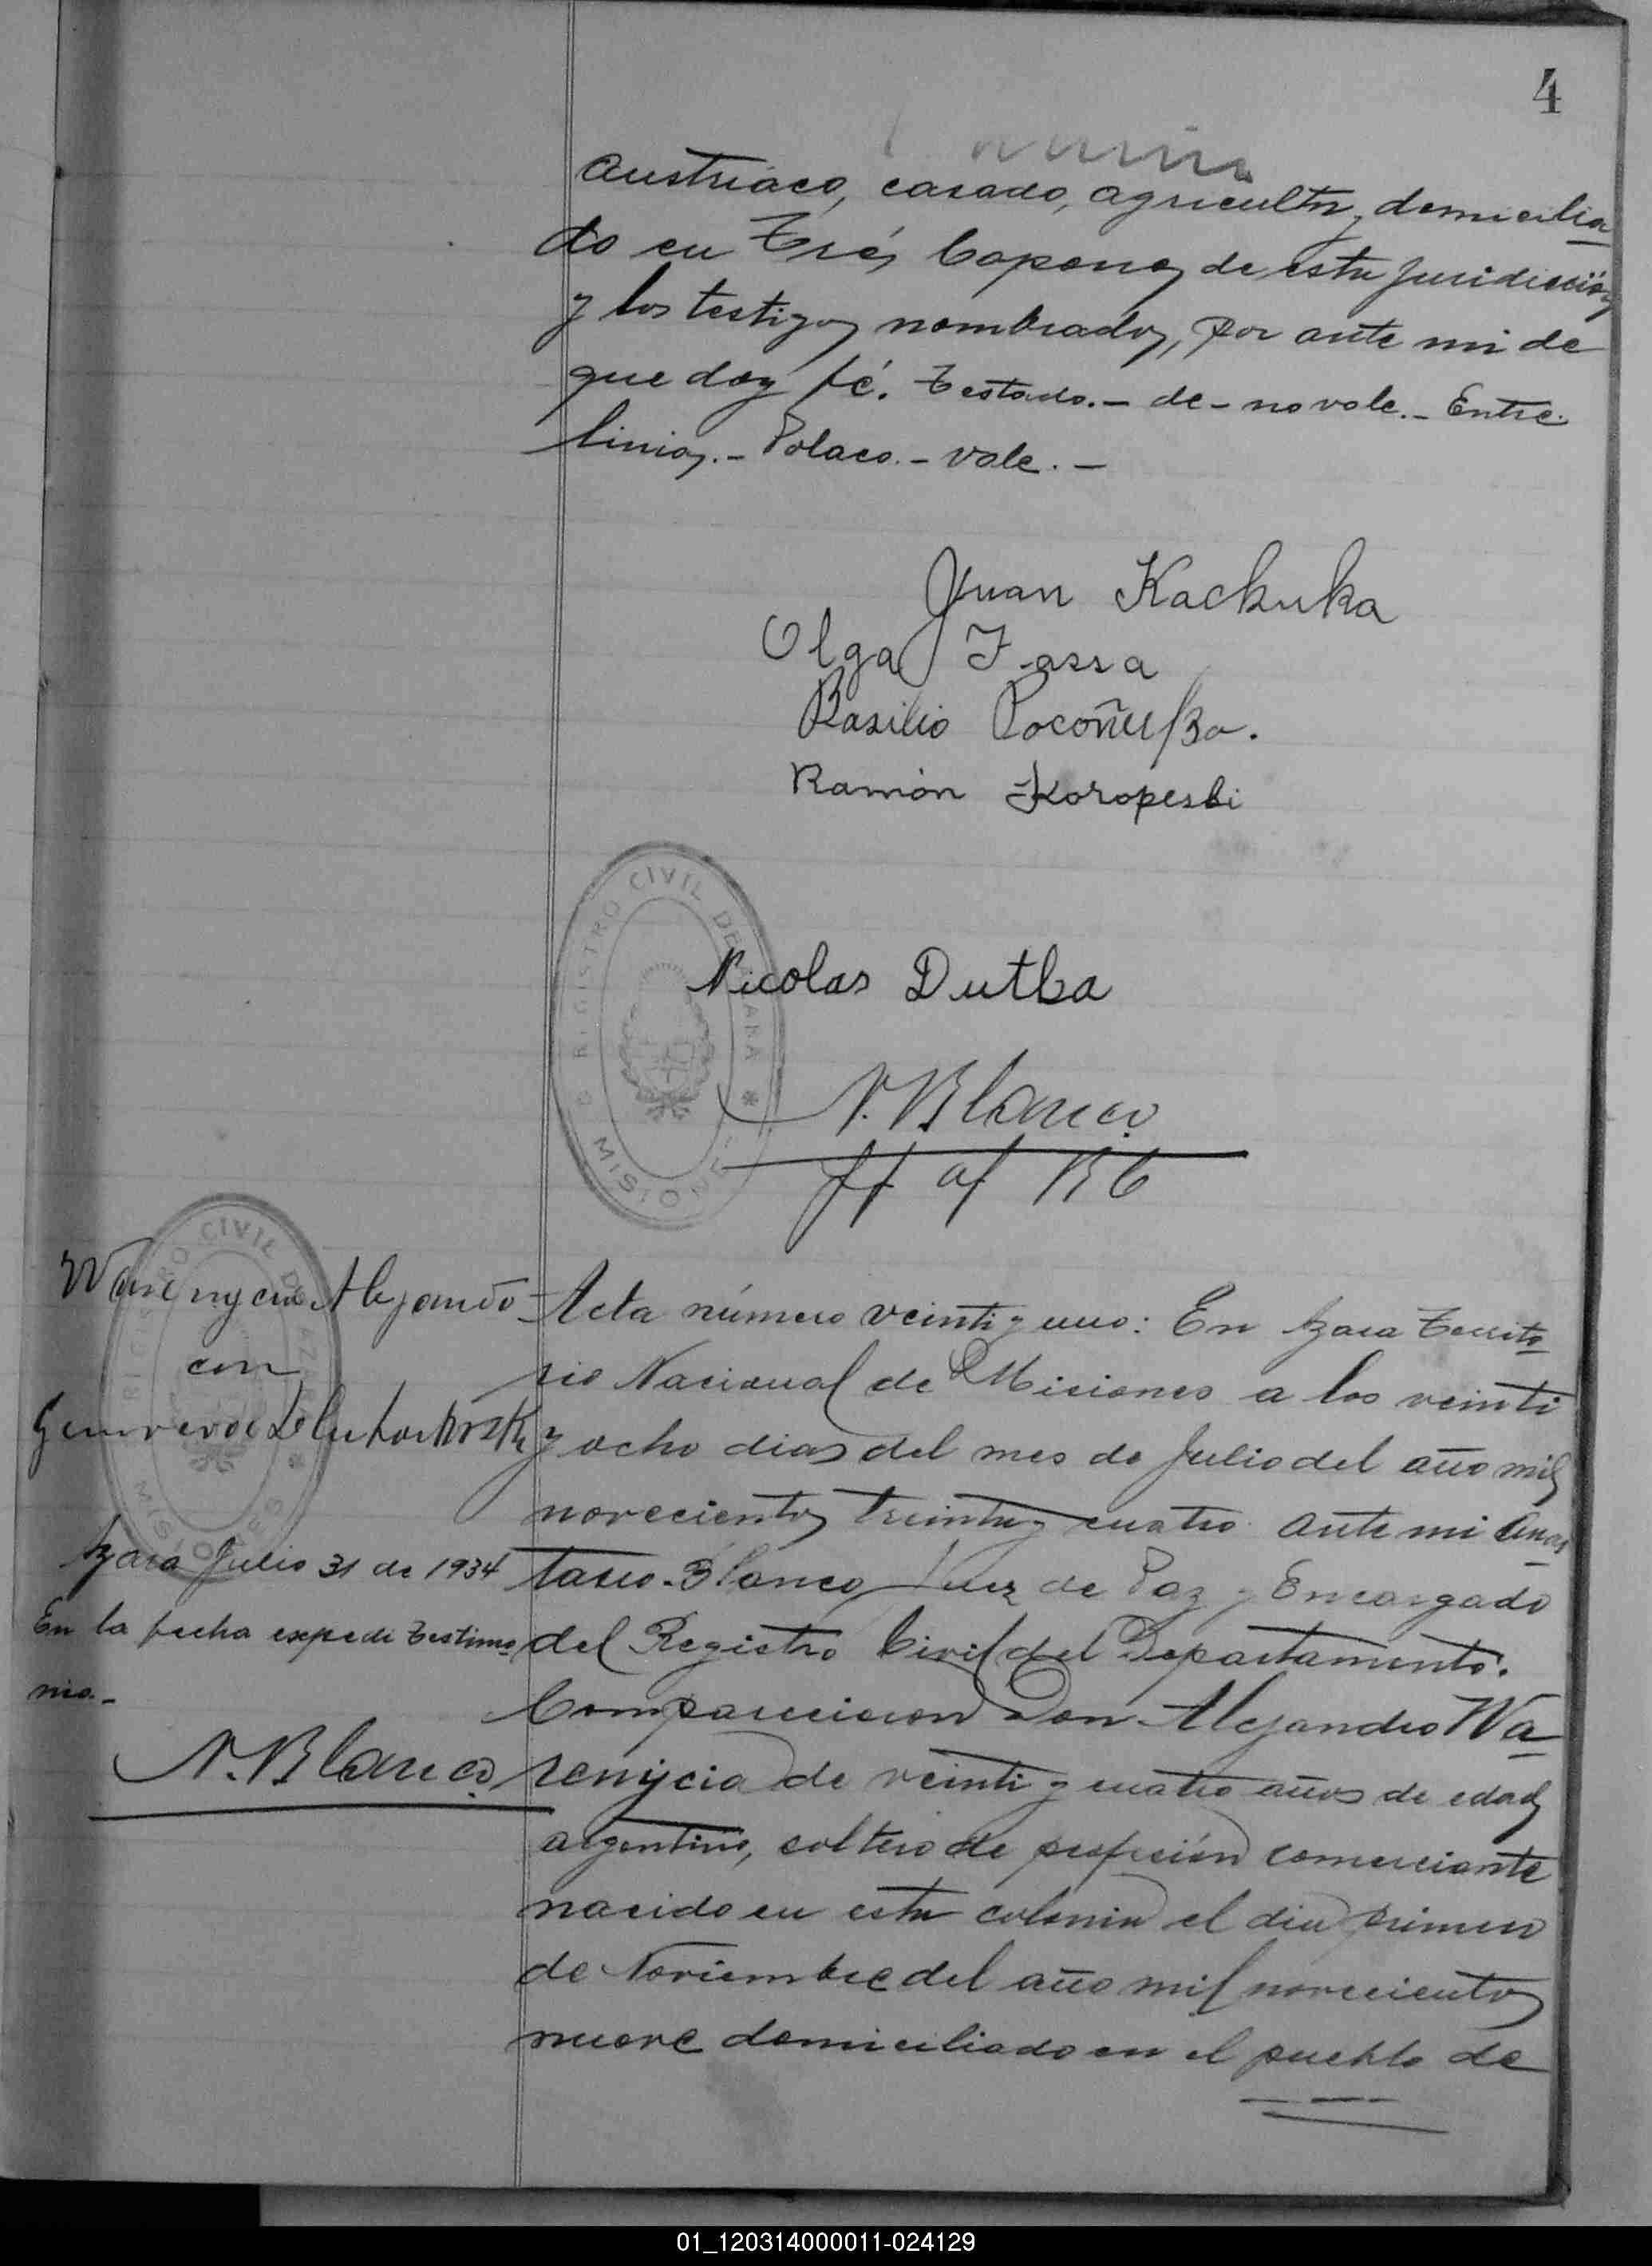 4
austriaco, casado, agricultor, domicilia
do en Tres Capones de esta juridiccion
y los testigos nombrados, por ante mi de
que doy fé. Testado.- de - no vale.- Entre
linias.- Polaco.- vale.-
Juan Kachuka
Olga
Basilio
Ramón Koropeski
REGISTRO CIVIL DE AZARA
MISIONES
Nicolas Dutka
A. Blanco
REGISTRO CIVIL DE AZARA
MISIONES
Warenycia Alejandro
con
Azara Julio 31 de 1934
En la fecha expedi testimo
nio.-
A. Blanco
Acta número veinti y uno: En Azara Territo
rio Nacional de Misiones a los veinti
y ocho dias del mes de Julio del año mil
novecientos treinta y cuatro. Ante mi Anas
tacio Blanco Juez de Paz y Encargado
del Registro Civil del Departamento.
Comparecieron Don Alejandro Wa
renycia de veinti y cuatro años de edad
argentino, soltero de profeción comerciante
nacido en esta colonia el dia primero
de Noviembre del año mil novecientos
nueve domiciliado en el pueblo de
01_120314000011-024129